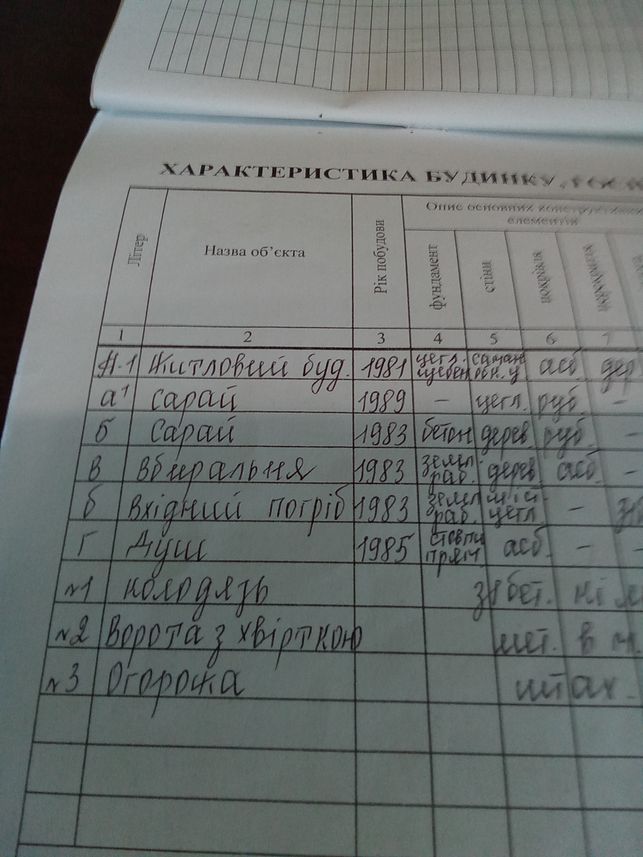 ХАРАКТЕРИСТИКА БУДИНКУ,
Літер Назва об'єкта Рік побудови Опис основних конструктивних
елементів
фундамент стіни покрівля
1 2 3 4 5 6 7
А-1 Житловий буд. 1981 цегл. саман асб. дер
щебен
а¹ сарай 1989 – цегл. руб. –
Б Сарай 1983 бетон дерев руб. –
В Вбиральня 1983 земл. дерев асб. –
раб.
б Вхідний погріб 1983 земл. –
раб. цегл
Г Душ 1985 асб. – –
№1 колодязь бет.
№2 Ворота з хвірткою мет.
№3 Огорожа штах.